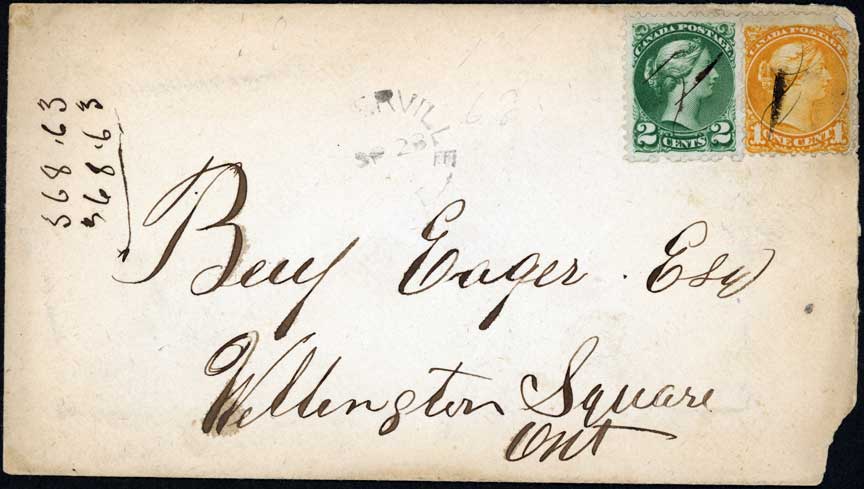 CANADA POSTAGE
2 CENTS 2
CANADA POSTAGE
1 ONE CENT 1
SP 23
368.63
368.63
Benj Eager. Esq
Wellington Square
Ont